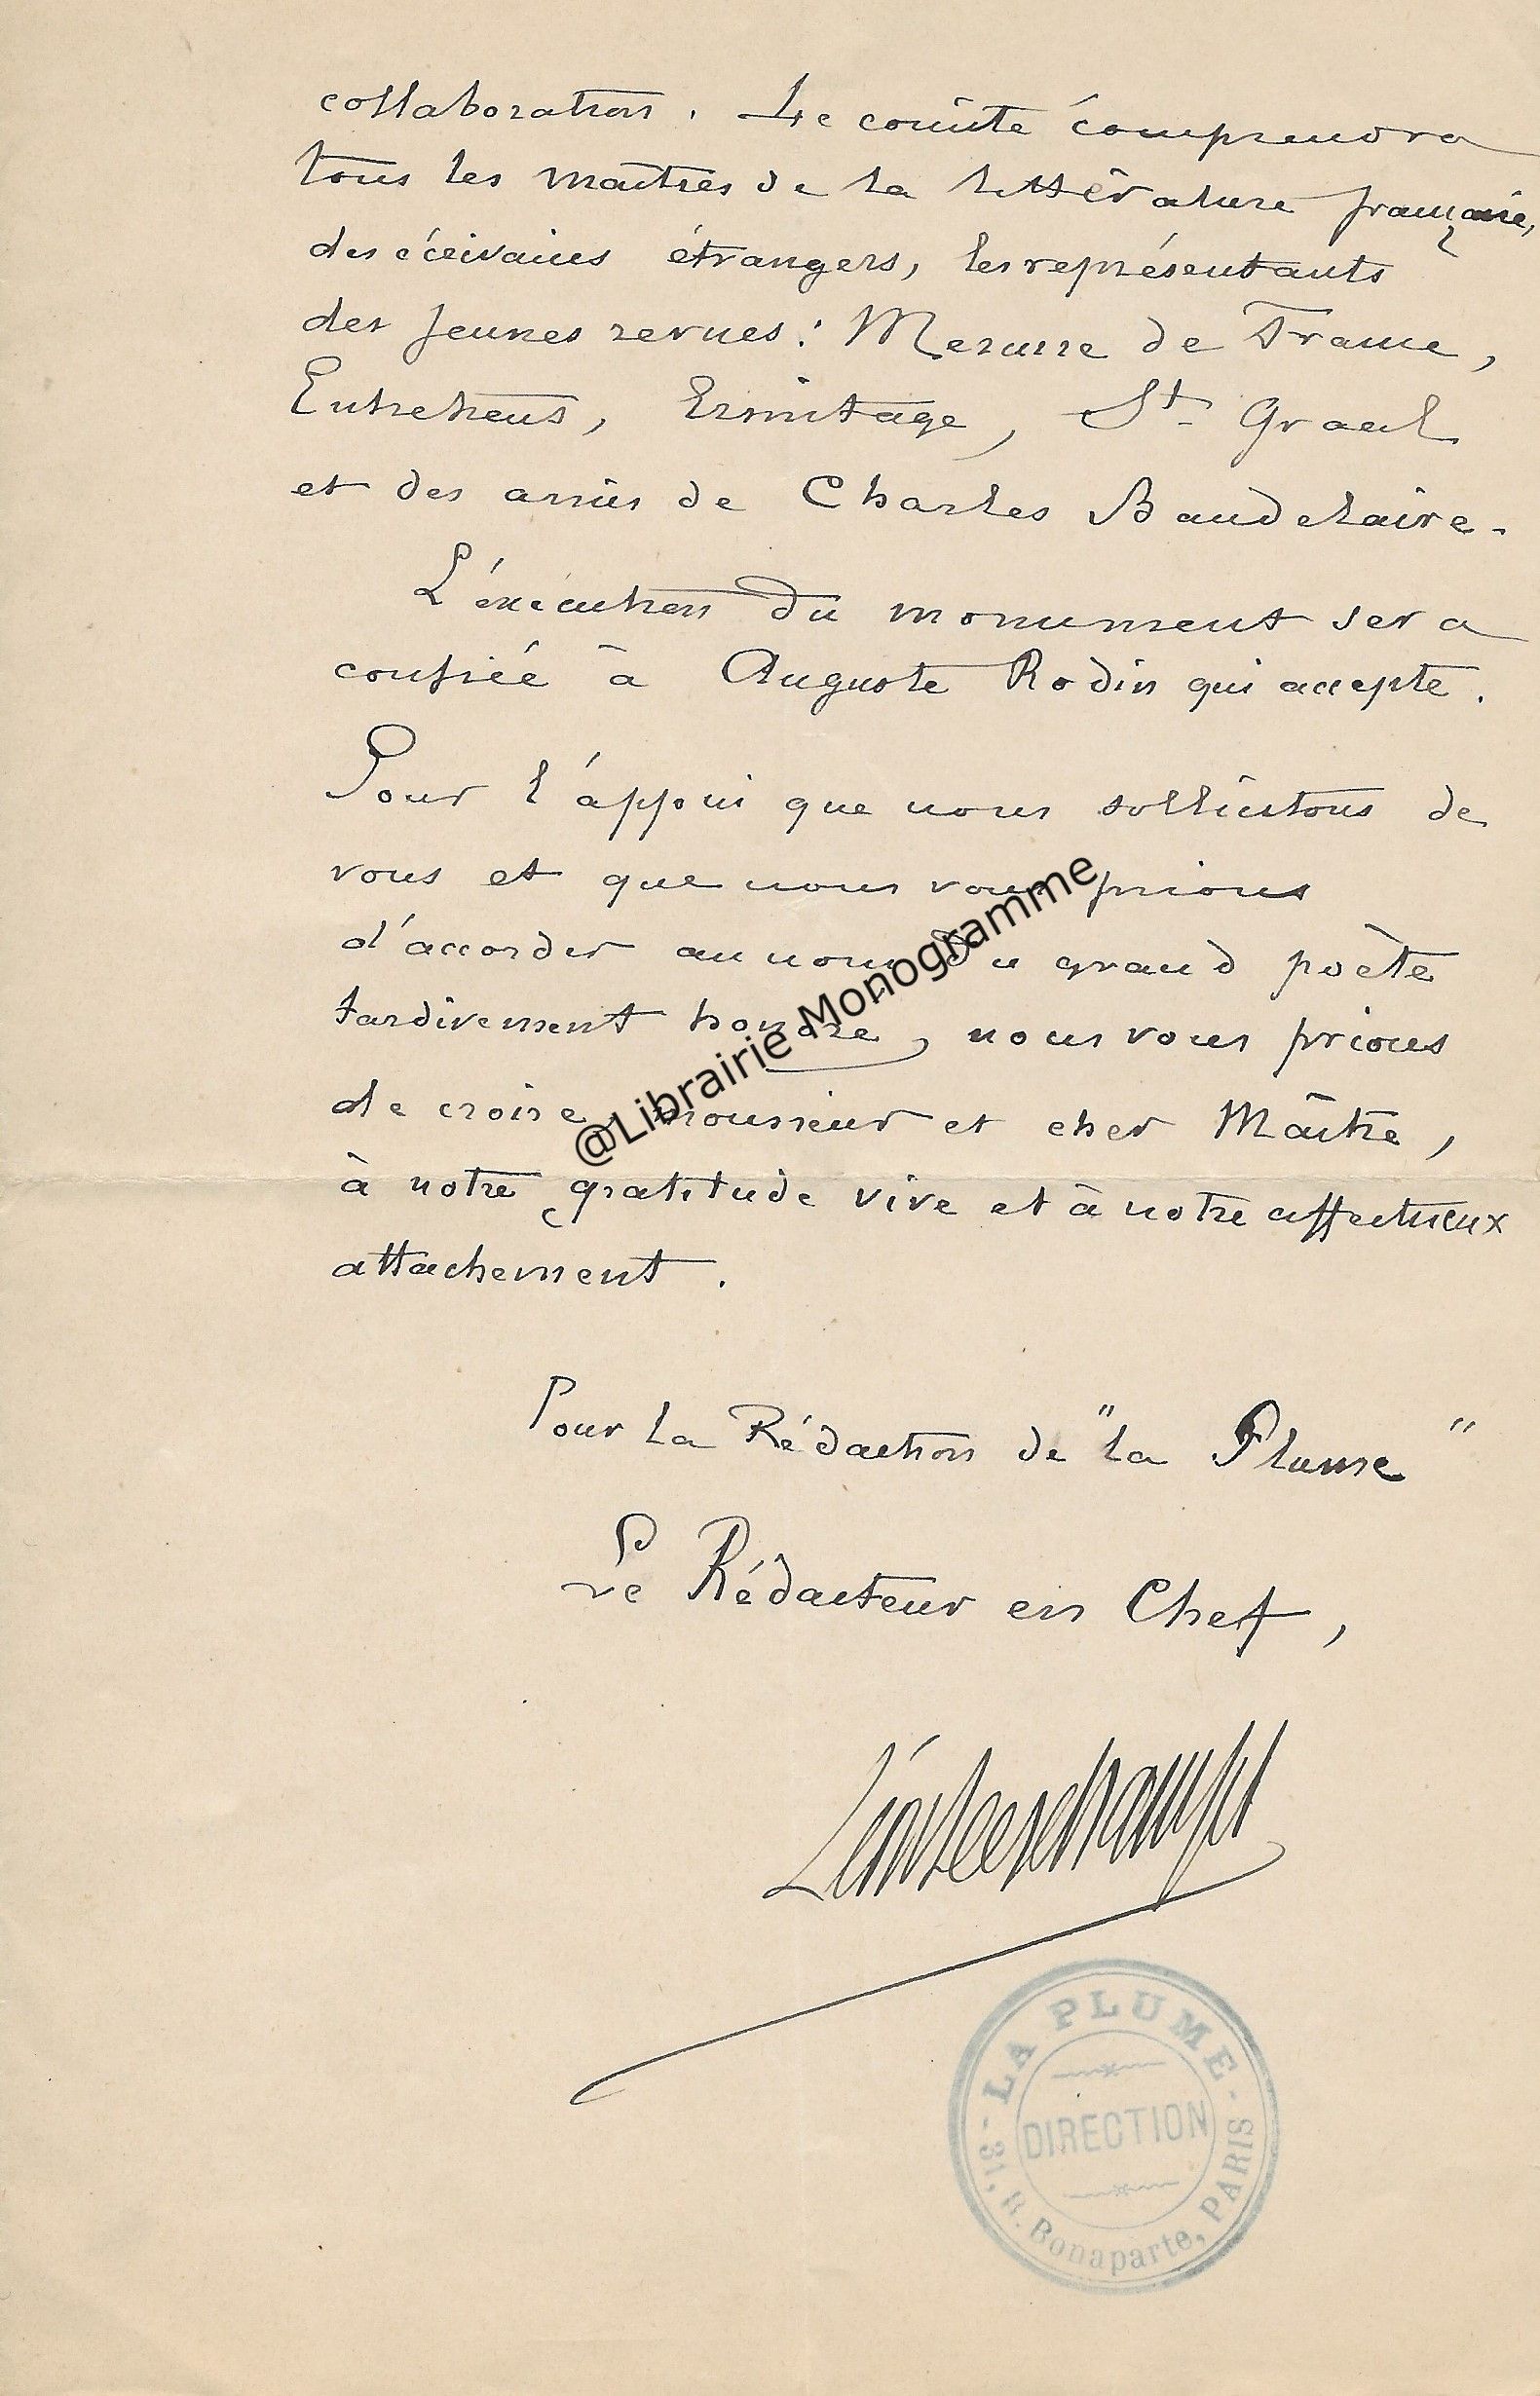 collaboration. Le comité comprendra
tous les maîtres de la littérature française,
des écrivains étrangers, les représentants
des jeunes revues : Mercure de France,
Entretiens, Ermitage, St Graal
et des amis de Charles Baudelaire.
L'exécution du monument sera
confiée à Auguste Rodin qui accepte.
Pour l'appui que nous sollicitons de
vous et que nous vous prions
d'accorder au nom du grand poète
tardivement honoré, nous vous prions
de croire, monsieur et cher Maître,
à notre gratitude vive et à notre affectueux
attachement.
Pour la Rédaction de "la Plume"
Le Rédacteur en Chef,
Léon Deschamps
LA PLUME
DIRECTION
31, R. Bonaparte, PARIS
@Librairie Monogramme